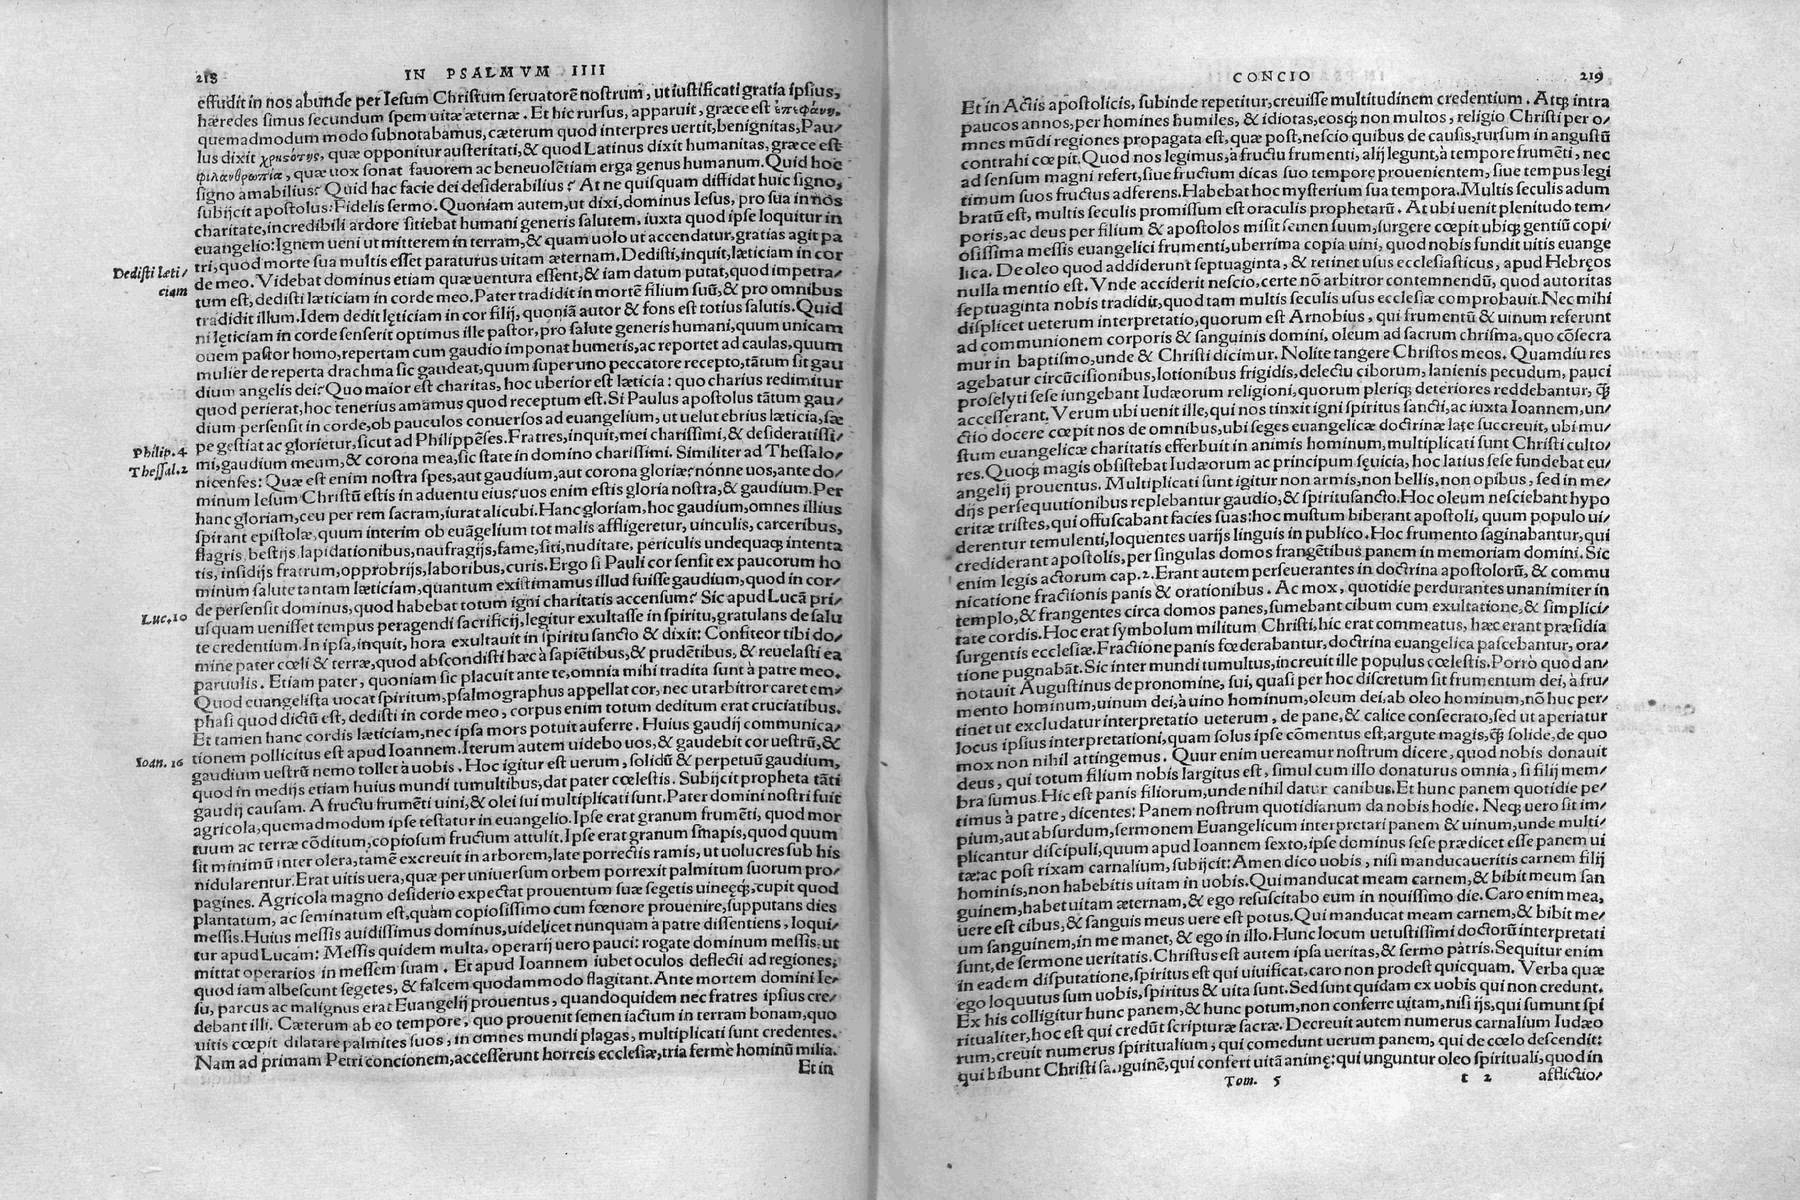 218
IN PSALMVM IIII
effudit in nos abunde per Iesum Christum seruatorē nostrum, ut iustificati gratia ipsius,
hæredes simus secundum spem uitæ æternæ. Et hic rursus, apparuit, græce est ἐπιφάνη,
quemadmodum modo subnotabamus, cæterum quod interpres uertit, benignitas, Pau/
lus dixit χρηςότης, quæ opponitur austeritati, & quod Latinus dixit humanitas, græce est
φιλανθρωπία, quæ uox sonat fauorem ac beneuolētiam erga genus humanum. Quid hoc
signo amabilius? Quid hac facie dei desiderabilius? At ne quisquam diffidat huic signo,
subijcit apostolus: Fidelis sermo. Quoniam autem, ut dixi, dominus Iesus, pro sua in nos
charitate, incredibili ardore sitiebat humani generis salutem, iuxta quod ipse loquitur in
euangelio: Ignem ueni ut mitterem in terram, & quam uolo ut accendatur, gratias agit pa
tri, quod morte sua multis esset paraturus uitam æternam. Dedisti, inquit, læticiam in cor
Dedisti læti/
ciam
de meo. Videbat dominus etiam quæ uentura essent, & iam datum putat, quod impetra/
tum est, dedisti læticiam in corde meo. Pater tradidit in mortē filium suū, & pro omnibus
tradidit illum. Idem dedit lęticiam in cor filij, quoniā autor & fons est totius salutis. Quid
ni lęticiam in corde senserit optimus ille pastor, pro salute generis humani, quum unicam
ouem pastor homo, repertam cum gaudio imponat humeris, ac reportet ad caulas, quum
mulier de reperta drachma sic gaudeat, quum super uno peccatore recepto, tātum sit gau
dium angelis dei? Quo maior est charitas, hoc uberior est læticia: quo charius redimitur
quod perierat, hoc tenerius amamus quod receptum est. Si Paulus apostolus tātum gau/
dium persensit in corde, ob pauculos conuersos ad euangelium, ut uelut ebrius læticia, sæ
pe gestiat ac glorietur, sicut ad Philippēses. Fratres, inquit, mei charissimi, & desideratissi/
Philip. 4
mi, gaudium meum, & corona mea, sic state in domino charissimi. Similiter ad Thessalo/
Thessal. 2
nicenses: Quæ est enim nostra spes, aut gaudium, aut corona gloriæ? nónne uos, ante do/
minum Iesum Christū estis in aduentu eius? uos enim estis gloria nostra, & gaudium. Per
hanc gloriam, ceu per rem sacram, iurat alicubi. Hanc gloriam, hoc gaudium, omnes illius
spirant epistolæ, quum interim ob euāgelium tot malis affligeretur, uinculis, carceribus,
flagris, bestijs, lapidationibus, naufragijs, fame, siti, nuditate, periculis undequaq; intenta
tis, insidijs fratrum, opprobrijs, laboribus, curis. Ergo si Pauli cor sensit ex paucorum ho
minum salute tantam læticiam, quantum existimamus illud fuisse gaudium, quod in cor/
de persensit dominus, quod habebat totum igni charitatis accensum? Sic apud Lucā pri/
Luc. 10
usquam uenisset tempus peragendi sacrificij, legitur exultasse in spiritu, gratulans de salu
te credentium. In ipsa, inquit, hora exultauit in spiritu sancto & dixit: Confiteor tibi do/
mine pater cœli & terræ, quod abscondisti hæc à sapiētibus, & prudētibus, & reuelasti ea
paruulis. Etiam pater, quoniam sic placuit ante te, omnia mihi tradita sunt à patre meo.
Quod euangelista uocat spiritum, psalmographus appellat cor, nec ut arbitror caret em/
phasi quod dictū est, dedisti in corde meo, corpus enim totum deditum erat cruciatibus.
Et tamen hanc cordis læticiam, nec ipsa mors potuit auferre. Huius gaudij communica/
tionem pollicitus est apud Ioannem. Iterum autem uidebo uos, & gaudebit cor uestrū, &
Ioan. 16
gaudium uestrū nemo tollet à uobis. Hoc igitur est uerum, solidū & perpetuū gaudium,
quod in medijs etiam huius mundi tumultibus, dat pater cœlestis. Subijcit propheta tāti
gaudij causam. A fructu frumēti uini, & olei sui multiplicati sunt. Pater domini nostri fuit
agricola, quemadmodum ipse testatur in euangelio. Ipse erat granum frumēti, quod mor
tuum ac terræ cōditum, copiosum fructum attulit. Ipse erat granum sinapis, quod quum
sit minimū inter olera, tamē excreuit in arborem, late porrectis ramis, ut uolucres sub his
nidularentur. Erat uitis uera, quæ per uniuersum orbem porrexit palmitum suorum pro/
pagines. Agricola magno desiderio expectat prouentum suæ segetis uineęq́;, cupit quod
plantatum, ac seminatum est, quàm copiosissimo cum fœnore prouenire, supputans dies
messis. Huius messis auidissimus dominus, uidelicet nunquam à patre dissentiens, loqui/
tur apud Lucam: Messis quidem multa, operarij uero pauci: rogate dominum messis, ut
mittat operarios in messem suam. Et apud Ioannem iubet oculos deflecti ad regiones,
quod iam albescunt segetes, & falcem quodammodo flagitant. Ante mortem domini Ie/
su, parcus ac malignus erat Euangelij prouentus, quandoquidem nec fratres ipsius cre/
debant illi. Cæterum ab eo tempore, quo prouenit semen iactum in terram bonam, quo
uitis cœpit dilatare palmites suos, in omnes mundi plagas, multiplicati sunt credentes.
Nam ad primam Petri concionem, accesserunt horreis ecclesiæ, tria ferme hominū milia.
Et in
CONCIO
219
Et in Actis apostolicis, subinde repetitur, creuisse multitudinem credentium. Atq; intra
paucos annos, per homines humiles, & idiotas, eosq; non multos, religio Christi per o/
mnes mūdi regiones propagata est, quæ post, nescio quibus de causis, rursum in angustū
contrahi cœpit. Quod nos legimus, à fructu frumenti, alij legunt, à tempore frumēti, nec
ad sensum magni refert, siue fructum dicas suo tempore prouenientem, siue tempus legi
timum suos fructus adferens. Habebat hoc mysterium sua tempora. Multis seculis adum
bratū est, multis seculis promissum est oraculis prophetarū. At ubi uenit plenitudo tem/
poris, ac deus per filium & apostolos misit semen suum, surgere cœpit ubiq; gentiū copi/
osissima messis euangelici frumenti, uberrima copia uini, quod nobis fundit uitis euange
lica. De oleo quod addiderunt septuaginta, & retinet usus ecclesiasticus, apud Hebręos
nulla mentio est. Vnde acciderit nescio, certe nō arbitror contemnendū, quod autoritas
septuaginta nobis tradidit, quod tam multis seculis usus ecclesiæ comprobauit. Nec mihi
displicet ueterum interpretatio, quorum est Arnobius, qui frumentū & uinum referunt
ad communionem corporis & sanguinis domini, oleum ad sacrum chrisma, quo cōsecra
mur in baptismo, unde & Christi dicimur. Nolite tangere Christos meos. Quamdiu res
agebatur circūcisionibus, lotionibus frigidis, delectu ciborum, lanienis pecudum, pauci
proselyti sese iungebant Iudæorum religioni, quorum pleriq; deteriores reddebantur, q̄
accesserant. Verum ubi uenit ille, qui nos tinxit igni spiritus sancti, ac iuxta Ioannem, un/
ctio docere cœpit nos de omnibus, ubi seges euangelicæ doctrinæ late succreuit, ubi mu/
stum euangelicæ charitatis efferbuit in animis hominum, multiplicati sunt Christi culto/
res. Quoq; magis obsistebat Iudæorum ac principum sęuicia, hoc latius sese fundebat eu/
angelij prouentus. Multiplicati sunt igitur non armis, non bellis, non opibus, sed in me/
dijs persequutionibus replebantur gaudio, & spiritu sancto. Hoc oleum nesciebant hypo
critæ tristes, qui offuscabant facies suas: hoc mustum biberant apostoli, quum populo ui/
derentur temulenti, loquentes uarijs linguis in publico. Hoc frumento saginabantur, qui
crediderant apostolis, per singulas domos frangētibus panem in memoriam domini. Sic
enim legis actorum cap. 2. Erant autem perseuerantes in doctrina apostolorū, & commu
nicatione fractionis panis & orationibus. Ac mox, quotidie perdurantes unanimiter in
templo, & frangentes circa domos panes, sumebant cibum cum exultatione, & simplici/
tate cordis. Hoc erat symbolum militum Christi, hic erat commeatus, hæc erant præsidia
surgentis ecclesiæ. Fractione panis fœderabantur, doctrina euangelica pascebantur, ora/
tione pugnabāt. Sic inter mundi tumultus, increuit ille populus cœlestis. Porrò quod an/
notauit Augustinus de pronomine, sui, quasi per hoc discretum sit frumentum dei, à fru/
mento hominum, uinum dei, à uino hominum, oleum dei, ab oleo hominum, nō huc per/
tinet ut excludatur interpretatio ueterum, de pane, & calice consecrato, sed ut aperiatur
locus ipsius interpretationi, quam solus ipse cōmentus est, argute magis, q̄ solide, de quo
mox non nihil attingemus. Quur enim uereamur nostrum dicere, quod nobis donauit
deus, qui totum filium nobis largitus est, simul cum illo donaturus omnia, si filij mem/
bra sumus. Hic est panis filiorum, unde nihil datur canibus. Et hunc panem quotidie pe/
timus à patre, dicentes: Panem nostrum quotidianum da nobis hodie. Neq; uero sit im/
pium, aut absurdum, sermonem Euangelicum interpretari panem & uinum, unde multi/
plicantur discipuli, quum apud Ioannem sexto, ipse dominus sese prædicet esse panem ui
tæ: ac post rixam carnalium, subijcit: Amen dico uobis, nisi manducaueritis carnem filij
hominis, non habebitis uitam in uobis. Qui manducat meam carnem, & bibit meum san
guinem, habet uitam æternam, & ego resuscitabo eum in nouissimo die. Caro enim mea,
uere est cibus, & sanguis meus uere est potus. Qui manducat meam carnem, & bibit me/
um sanguinem, in me manet, & ego in illo. Hunc locum uetustissimi doctorū interpretati
sunt, de sermone ueritatis. Christus est autem ipsa ueritas, & sermo patris. Sequitur enim
in eadem disputatione, spiritus est qui uiuificat, caro non prodest quicquam. Verba quæ
ego loquutus sum uobis, spiritus & uita sunt. Sed sunt quidam ex uobis qui non credunt.
Ex his colligitur hunc panem, & hunc potum, non conferre uitam, nisi ijs, qui sumunt spi
ritualiter, hoc est qui credūt scripturæ sacræ. Decreuit autem numerus carnalium Iudæo
rum, creuit numerus spiritualium, qui comedunt uerum panem, qui de cœlo descendit:
qui bibunt Christi sanguinē, qui confert uitā animę: qui unguntur oleo spirituali, quod in
Tom. 5
t 2
afflictio/